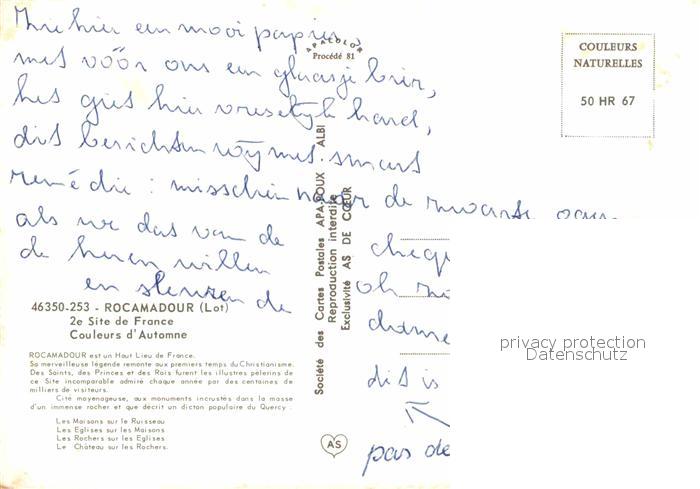 Zie hier een mooi papier
met vóór ons een glaasje bier,
het giet hier vreselijk hard,
dit berichten wij met smart
remédie : misschien naar de zwarte
als we dat van de
de heren willen
en de
APA COLOR
Procédé 81
COULEURS
NATURELLES
50 HR 67
Société des Cartes Postales APA-POUX ALBI
Reproduction interdite
Exclusivité AS DE CŒUR
oh
dit is
pas de
privacy protection
Datenschutz
46350-253 - ROCAMADOUR (Lot)
2e Site de France
Couleurs d'Automne
ROCAMADOUR est un Haut Lieu de France.
Sa merveilleuse légende remonte aux premiers temps du Christianisme.
Des Saints, des Princes et des Rois furent les illustres pèlerins de
ce Site incomparable admiré chaque année par des centaines de
milliers de visiteurs.
Cité moyenageuse, aux monuments incrustés dans la masse
d'un immense rocher et que décrit un dicton populaire du Quercy :
Les Maisons sur le Ruisseau
Les Eglises sur les Maisons
Les Rochers sur les Eglises
Le Château sur les Rochers.
AS